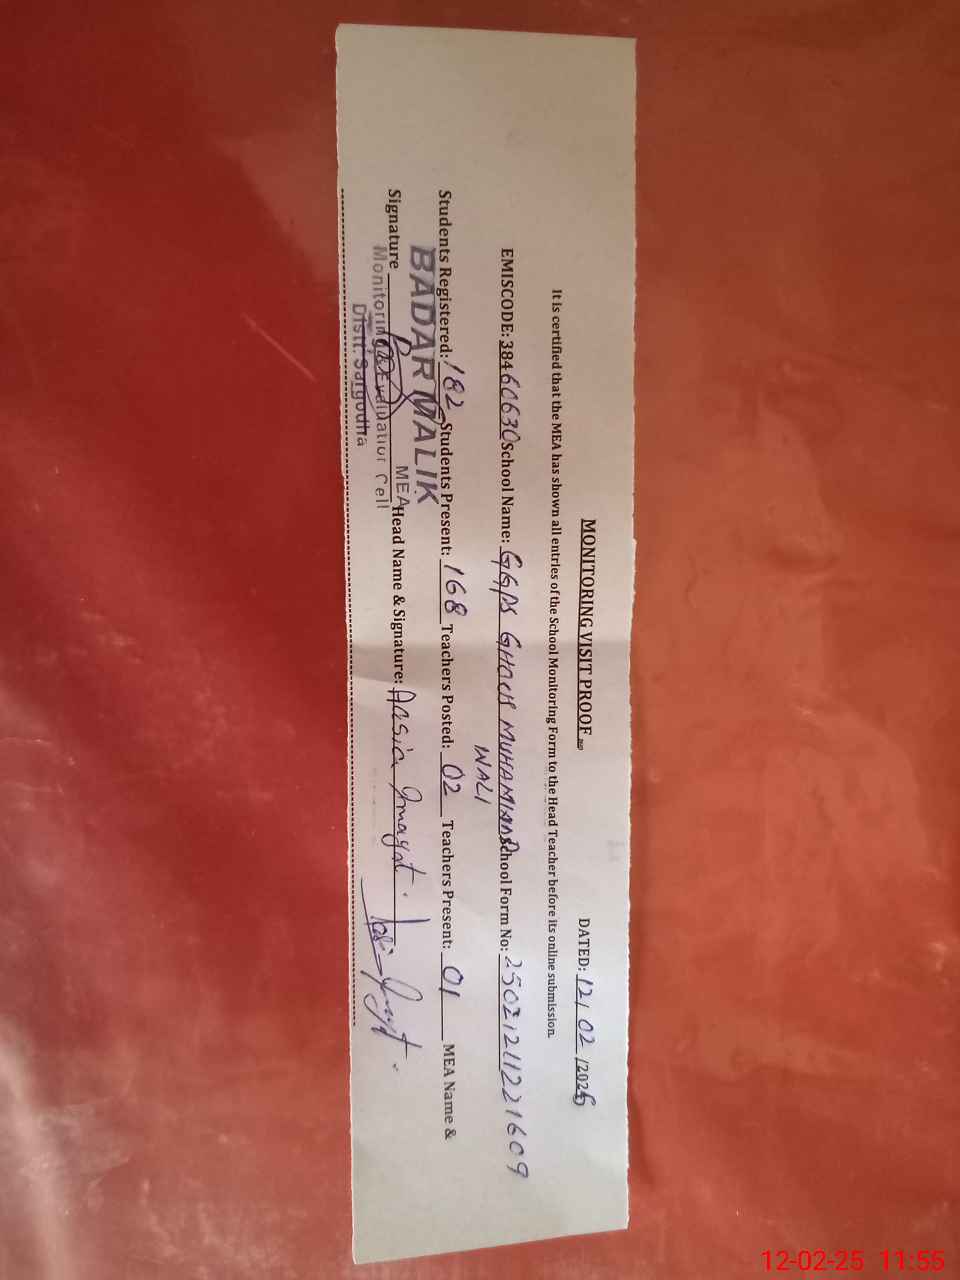 MONITORING VISIT PROOF
DATED: 12/02/2025
It is certified that the MEA has shown all entries of the School Monitoring Form to the Head Teacher before its online submission.
EMISCODE: 38460630 School Name: GGPS GHOUS MUHAMMAD School Form No: 2502121122 1609
WALI
Students Registered: 182 Students Present: 168 Teachers Posted: 02 Teachers Present: 01 MEA Name &
BADAR MALIK
MEA
Signature Head Name & Signature: Aasia Imayat.
Monitoring & Evaluation Cell
Distt: Sargodha
12-02-25 11:55